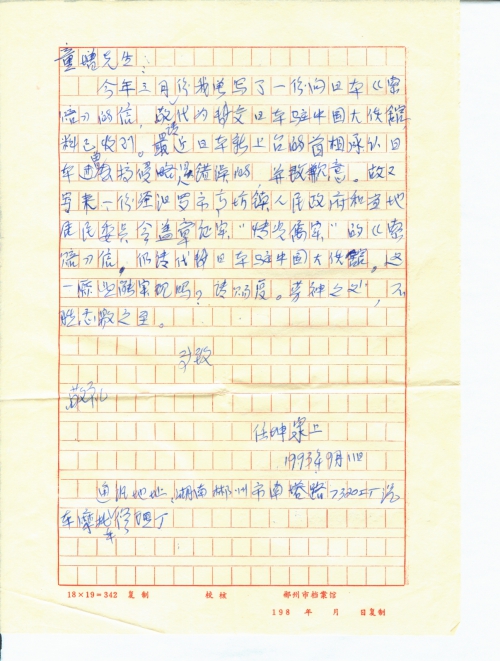 童增先生:
今年三月份我曾写了一份向日本《索
赔》的信,敬请代为转交日本驻中国大使馆,
料已收到。最近日本新上台的首相承认日
本过去搞侵略是错误的,并致歉意。故又
写来一份经汨罗市
镇人民政府和当地
居民委员会盖章证实"情况属实"的《索
赔》信。仍请代转日本驻中国大使馆。这
一
吗?请
复。劳神之处,不
胜感激之至。
此致
敬礼
任坤
上
1993年9月11日
通讯地址:湖南郴州市南塔路7320工厂汽
车摩托车修理厂
18×19=342 复制 校核 郴州市档案馆
198 年 月 日复制